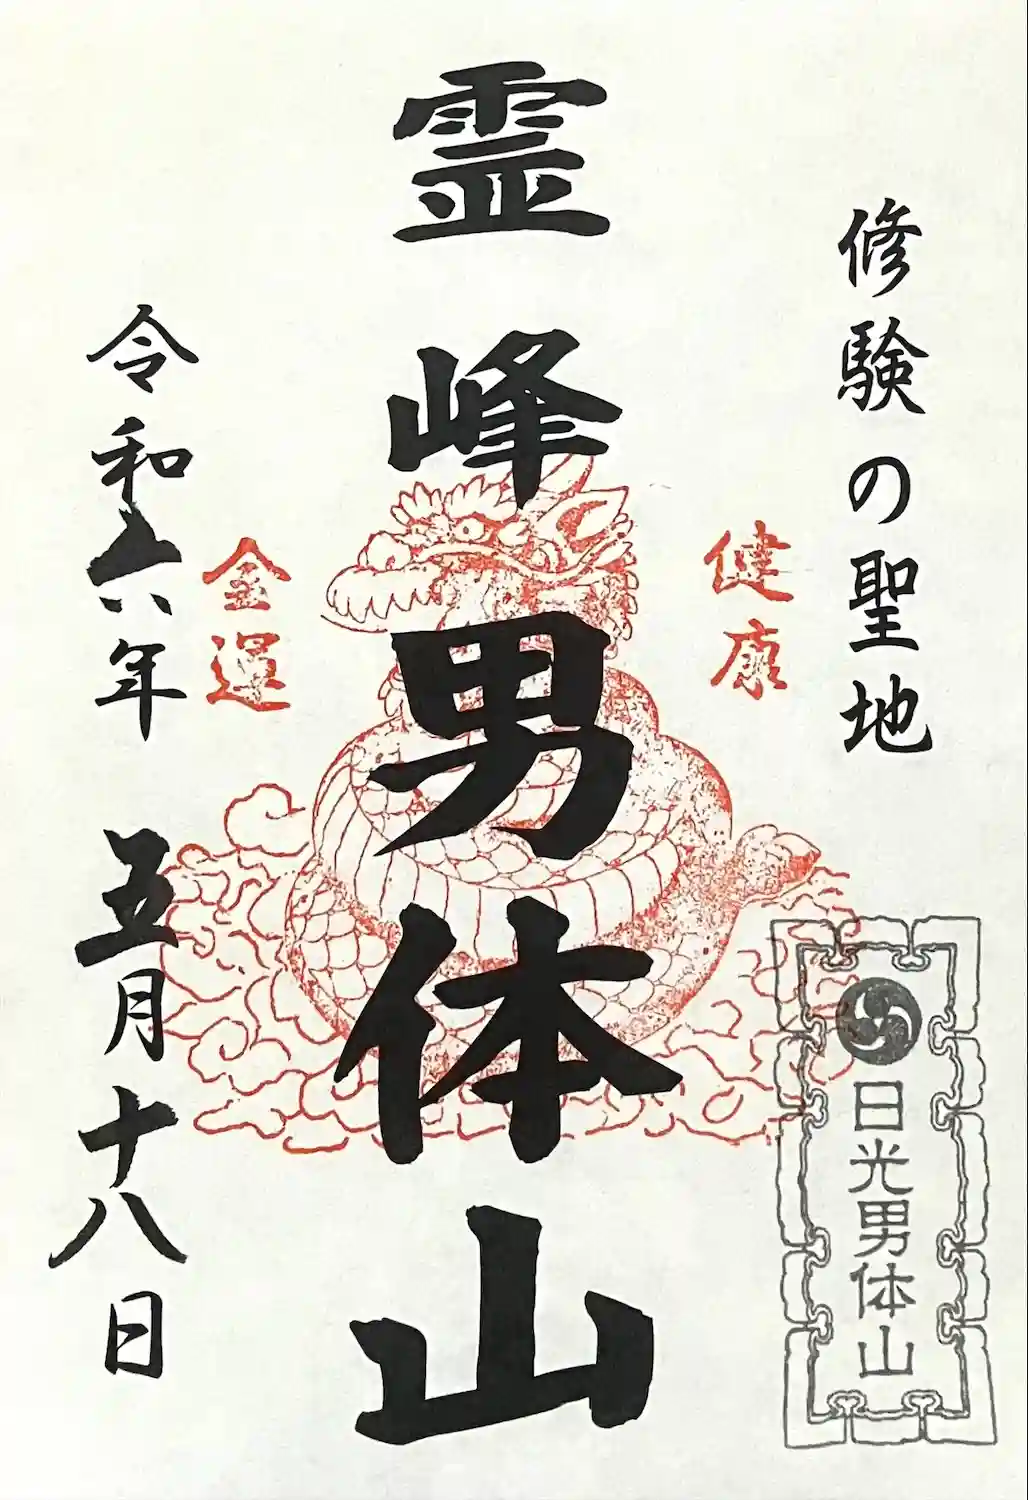 修験の聖地
日光男体山
健康
霊峰男体山
金運
令和六年五月十八日